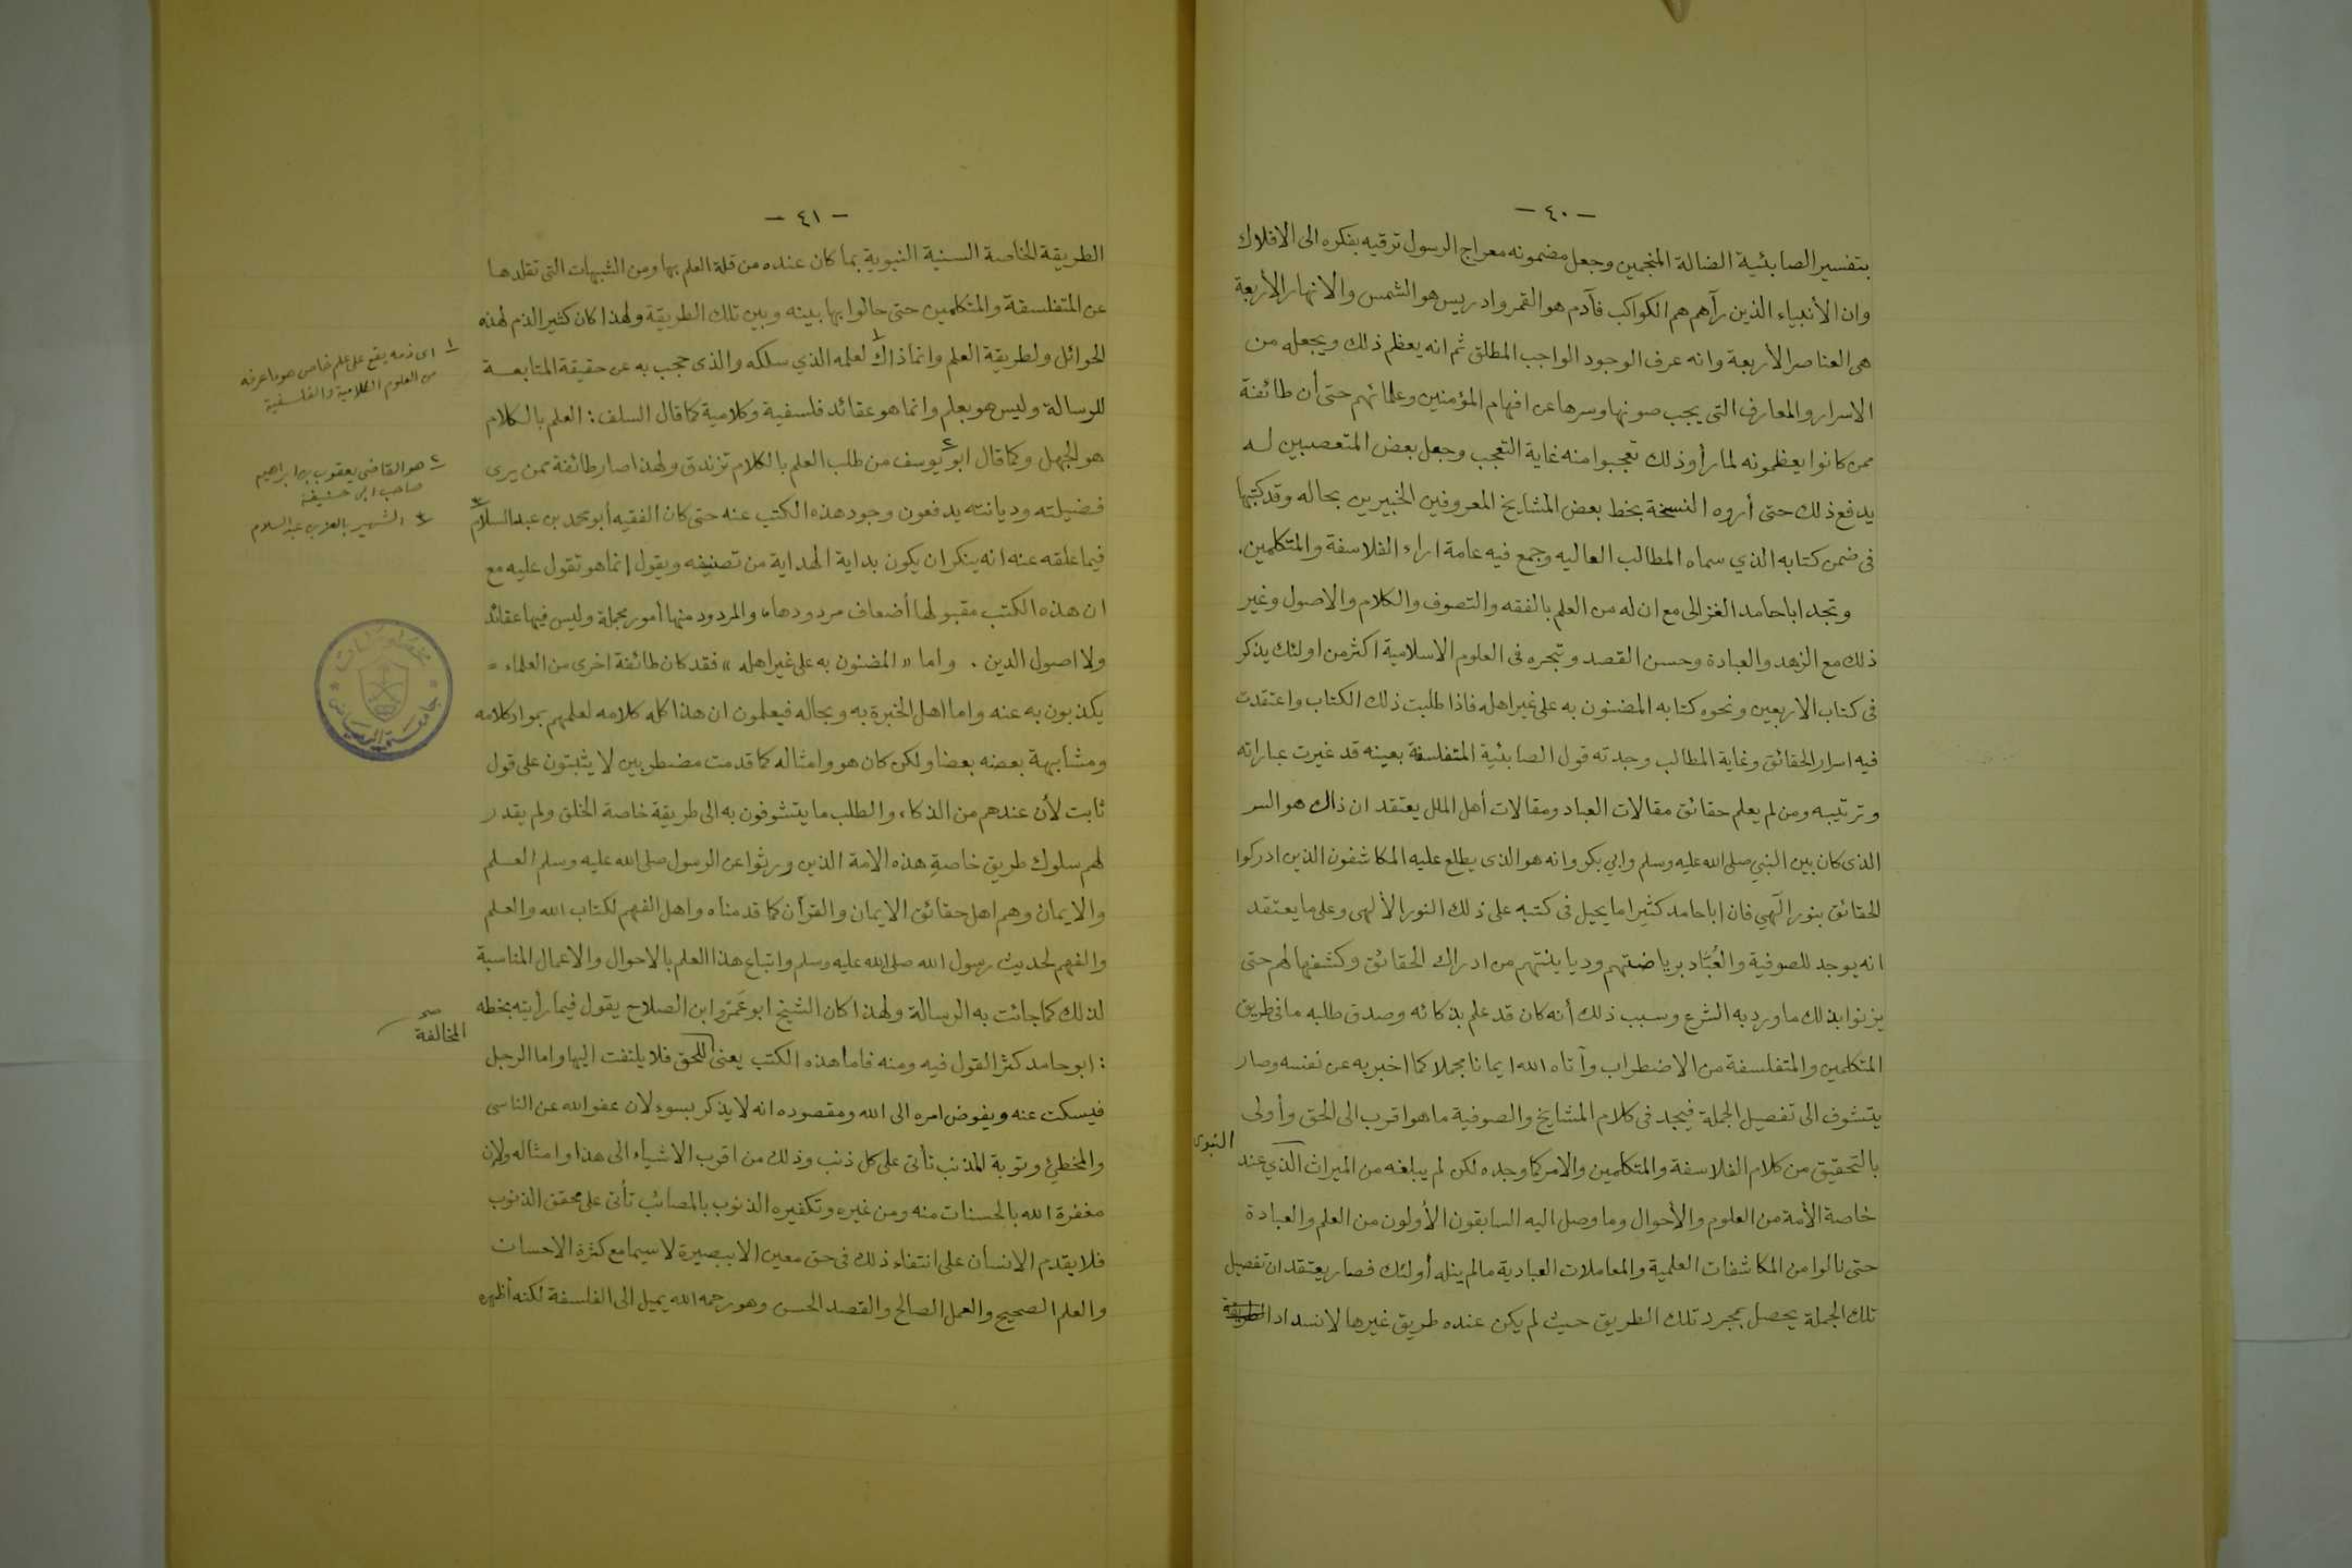 - ٤٠ -
بتفسير الصابئية الضالة المنجمين وجعل مضمونه معراج الرسول ترقيه بفكره الى الافلاك
وان الأنبياء الذين رآهم هم الكواكب فآدم هو القمر وادريس هو الشمس والانهار الأربعة
هى العناصر الأربعة وانه عرف الوجود الواجب المطلق ثم انه يعظم ذلك ويجعله من
الاسرار والمعارف التى يجب صونها وسرها عن افهام المؤمنين وعلمائهم حتى أن طائفة
ممن كانوا يعظمونه لما رأوا ذلك تعجبوا منه غاية التعجب وجعل بعض المتعصبين له
يدفع ذلك حتى أروه النسخة بخط بعض المشايخ المعروفين الخبيرين بحاله وقد كتبها
فى ضمن كتابه الذي سماه المطالب العاليه وجمع فيه عامة اراء الفلاسفة والمتكلمين.
وتجد ابا حامد الغزالى مع ان له من العلم بالفقه والتصوف والكلام والاصول وغير
ذلك مع الزهد والعبادة وحسن القصد وتبحره فى العلوم الاسلامية اكثر من اولئك يذكر
فى كتاب الاربعين ونحوه كتابه المضنون به على غير اهله فاذا طلبت ذلك الكتاب واعتقدت
فيه اسرار الحقائق وغاية المطالب وجدته قول الصابئية المتفلسفة بعينه قد غيرت عباراته
وترتيبه ومن لم يعلم حقائق مقالات العباد ومقالات أهل الملل يعتقد ان ذاك هو السر
الذى كان بين النبي صلى الله عليه وسلم وابي بكر وانه هو الذى يطلع عليه المكاشفون الذين ادركوا
الحقائق بنور الٓهي فان ابا حامد كثيرا ما يحيل فى كتبه على ذلك النور الألهى وعلى ما يعتقد
انه يوجد للصوفية والعُبّاد برياضتهم وديانتهم من ادراك الحقائق وكشفها لهم حتى
يزنوا بذلك ما ورد به الشرع وسبب ذلك أنه كان قد علم بذكائه وصدق طلبه ما فى طريق
المتكلمين والمتفلسفة من الاضطراب وآتاه الله ايمانا مجملا كما اخبر به عن نفسه وصار
يتشوف الى تفصيل الجملة فيجد فى كلام المشايخ والصوفية ما هو اقرب الى الحق وأولى
بالتحقيق من كلام الفلاسفة والمتكلمين والامر كما وجده لكن لم يبلغه من الميراث الذي عند
النبوى
خاصة الأمة من العلوم والأحوال وما وصل اليه السابقون الأولون من العلم والعبادة
حتى نالوا من المكاشفات العلمية والمعاملات العبادية ما لم ينله أولئك فصار يعتقد ان تفصيل
تلك الجملة يحصل بمجرد تلك الطريق حيث لم يكن عنده طريق غيرها لانسداد الطريقة
- ٤١ -
الطريقة الخاصة السنية النبوية بما كان عنده من قلة العلم بها ومن الشبهات التى تقلدها
عن المتفلسفة والمتكلمين حتى حالوا بها بينه وبين تلك الطريقة ولهذا كان كثير الذم لهذه
الحوائل ولطريقة العلم وانما ذاك ١ لعلمه الذي سلكه والذى حجب به عن حقيقة المتابعة
للرسالة وليس هو بعلم وانما هو عقائد فلسفية وكلامية كما قال السلف: العلم بالكلام
هو الجهل وكما قال ابو ٢ يوسف من طلب العلم بالكلام تزندق ولهذا صار طائفة ممن يرى
فضيلته وديانته يدفعون وجود هذه الكتب عنه حتى كان الفقيه أبو محمد بن عبد السلام ٣
فيما علقه عنه انه ينكر ان يكون بداية الهداية من تصنيفه ويقول انما هو تقول عليه مع
ان هذه الكتب مقبولها أضعاف مردودها، والمردود منها أمور مجملة وليس فيها عقائد
ولا اصول الدين. واما «المضنون به على غير اهله» فقد كان طائفة اخرى من العلماء
يكذبون به عنه واما اهل الخبرة به وبحاله فيعلمون ان هذا كله كلامه لعلمهم بمواد كلامه
ومشابهة بعضه بعضا ولكن كان هو وامثاله كما قدمت مضطربين لا يثبتون على قول
ثابت لأن عندهم من الذكاء والطلب ما يتشوفون به الى طريقة خاصة الخلق ولم يقدر
لهم سلوك طريق خاصةِ هذه الامة الذين ورثوا عن الرسول صلى الله عليه وسلم العلم
والايمان وهم اهل حقائق الايمان والقرآن كما قدمناه واهل الفهم لكتاب الله والعلم
والفهم لحديث رسول الله صلى الله عليه وسلم واتباع هذا العلم بالاحوال والاعمال المناسبة
لذلك كما جائت به الرسالة ولهذا كان الشيخ ابو عَمرو ابن الصلاح يقول فيما رأيته بخطه
: ابو حامد كثر القول فيه ومنه فاما هذه الكتب يعنى للحق فلا يلتفت اليها واما الرجل
فيسكت عنه ويفوض امره الى الله ومقصوده انه لا يذكر بسوء لان عفو الله عن الناسى
والمخطئ وتوبة المذنب تأتى على كل ذنب وذلك من اقرب الاشياء الى هذا وامثاله ولان
مغفرة الله بالحسنات منه ومن غيره وتكفيره الذنوب بالمصائب تأتى على محقق الذنوب
فلا يقدم الانسان على انتفاء ذلك فى حق معين الا ببصيرة لا سيما مع كثرة الاحسان
والعلم الصحيح والعمل الصالح والقصد الحسن وهو رحمه الله يميل الى الفلسفة لكنه أظهره
١ اى ذمه يقع على علم خاص هو ما عرفه
من العلوم الكلامية والفلسفية
٢ هو القاضى يعقوب بن ابراهيم
صاحب ابى حنيفة
٣ الشهير بالعز بن عبد السلام
المخالفة صح
جامعة الرياض